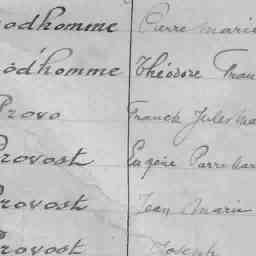 odhomme Pierre Marie
odhomme Théodore Fran
Provo Franck Jules Ma
Provost Eugène Pierre Mar
Provost Jean Marie
Provost Joseph